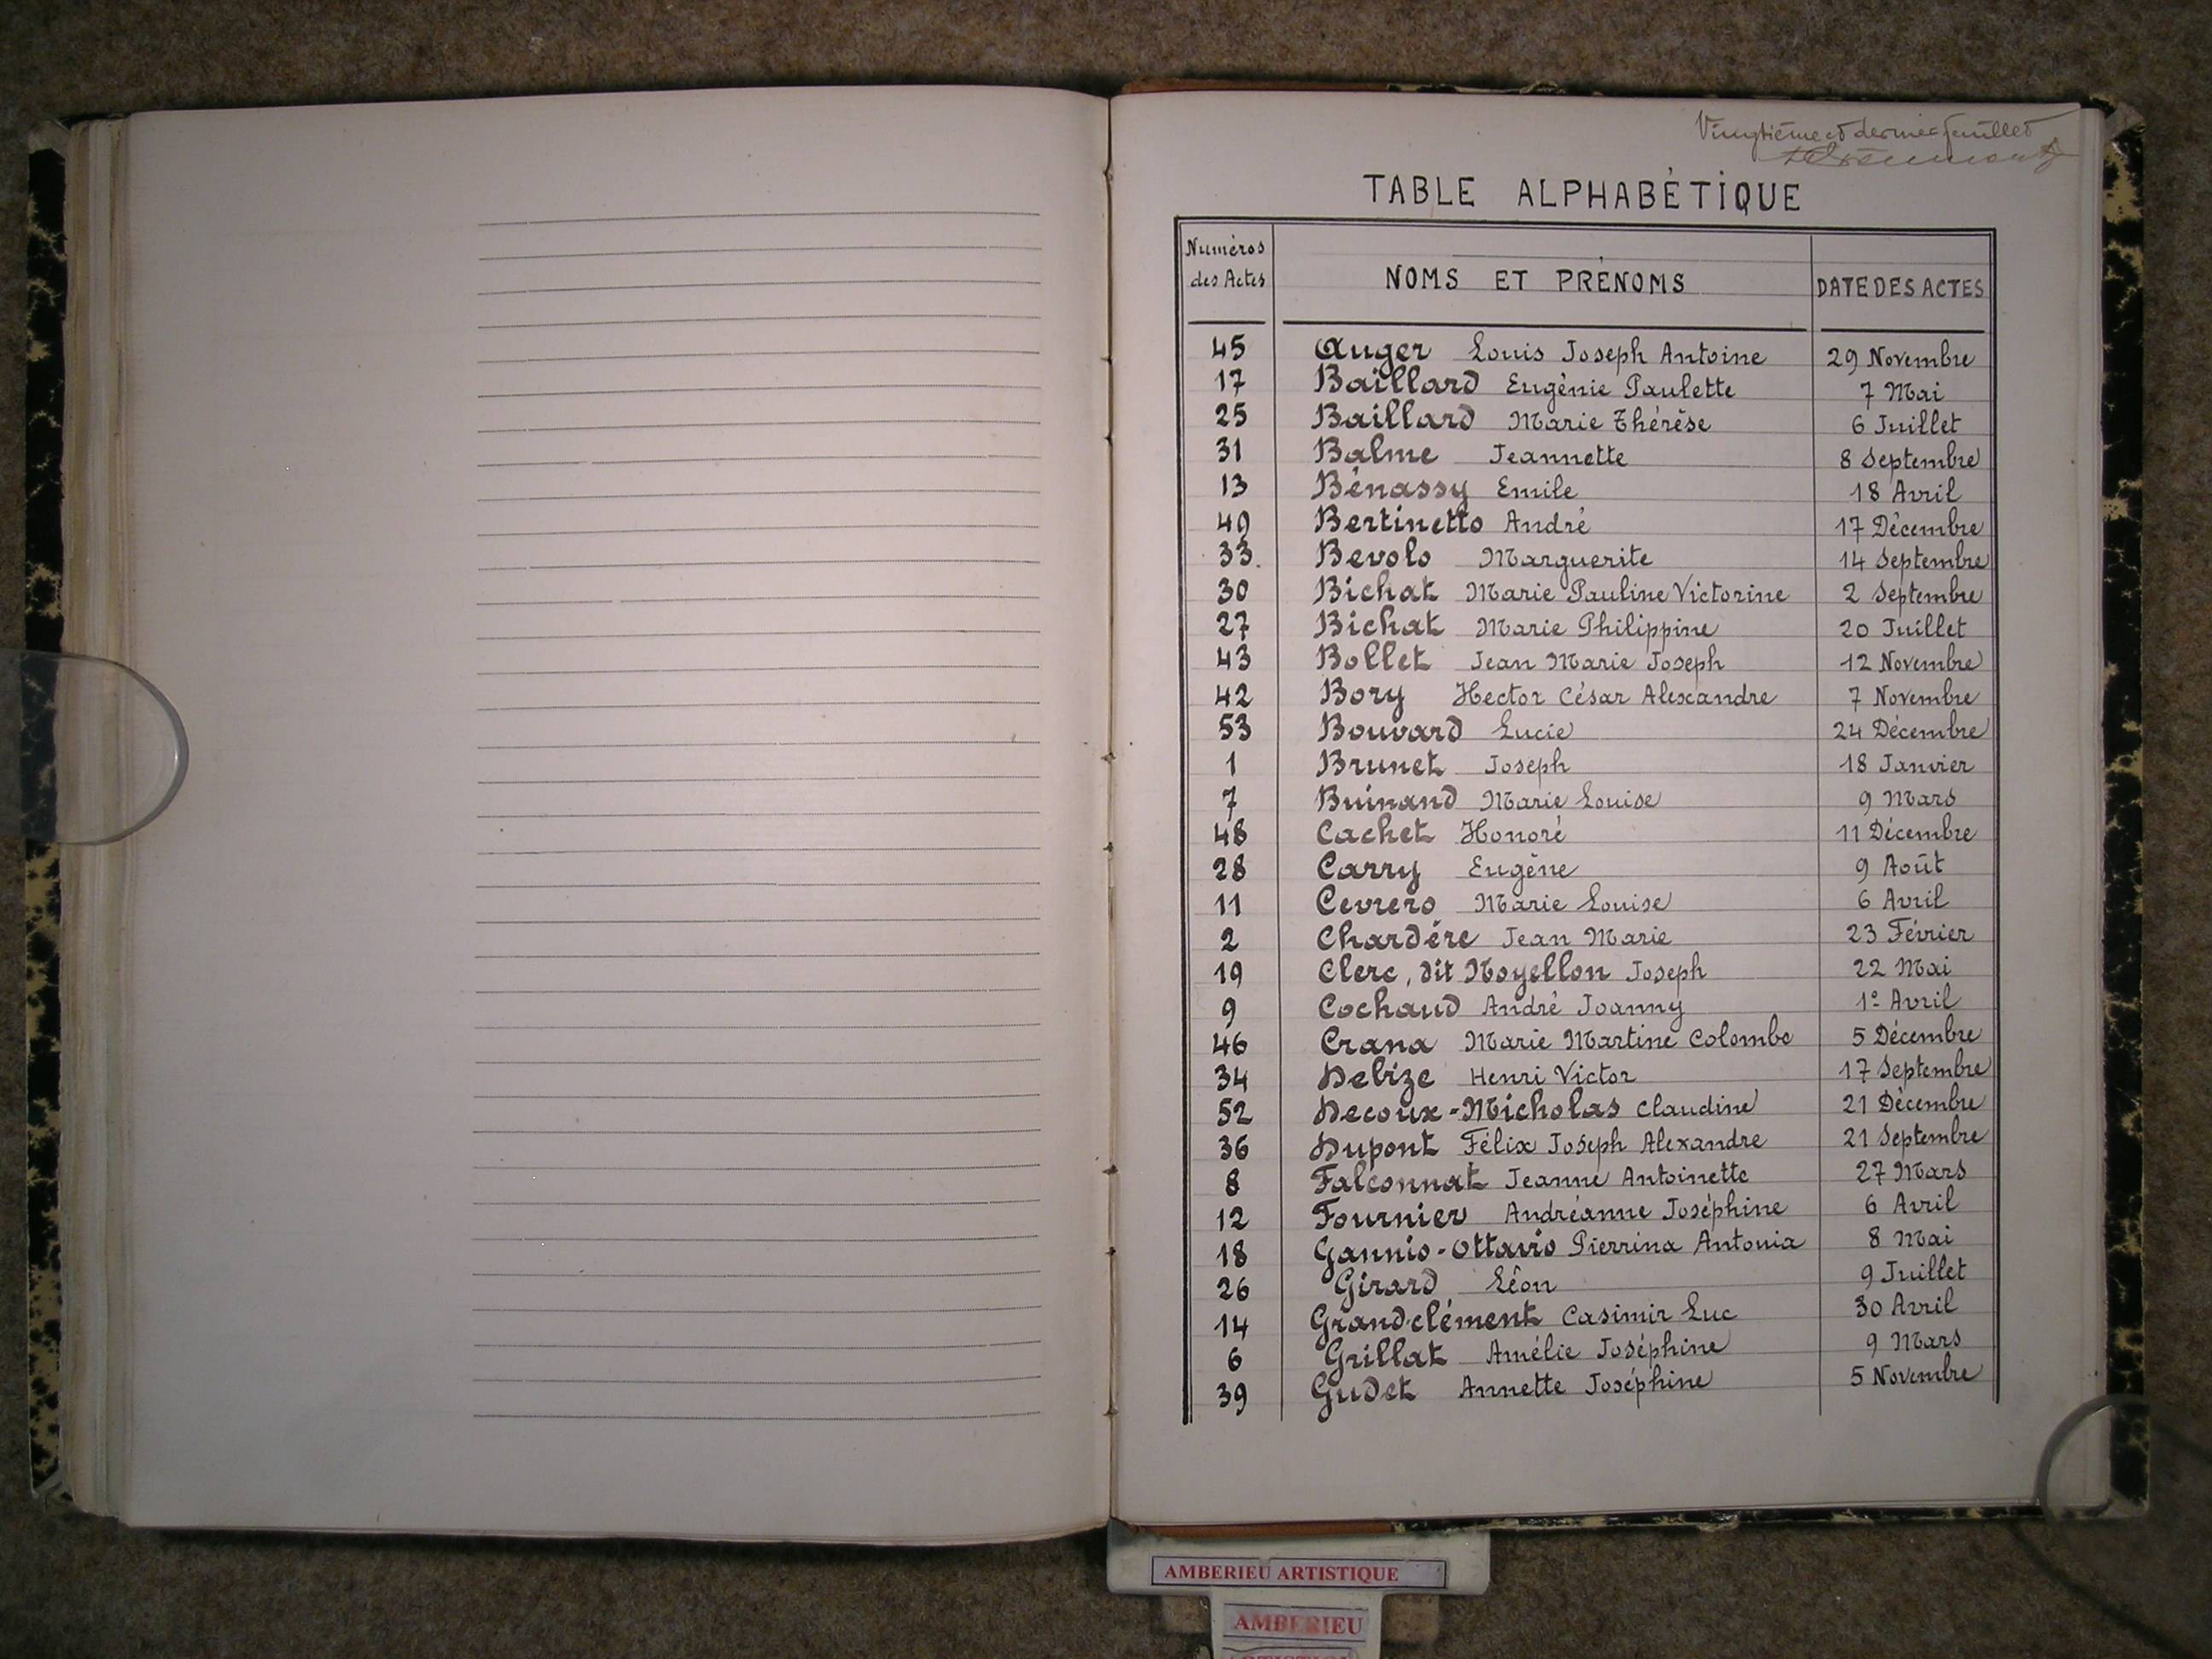 Vingtième et dernier feuillet
TABLE ALPHABÉTIQUE
Numéros des Actes NOMS ET PRÉNOMS DATE DES ACTES
45 Auger Louis Joseph Antoine 29 Novembre
17 Baillard Eugénie Paulette 7 Mai
25 Baillard Marie Thérèse 6 Juillet
31 Balme Jeannette 8 Septembre
13 Bénassy Emile 18 Avril
49 Bertinetto André 17 Décembre
33. Bevolo Marguerite 14 Septembre
30 Bichat Marie Pauline Victorine 2 Septembre
27 Bichat Marie Philippine 20 Juillet
43 Bollet Jean Marie Joseph 12 Novembre
42 Bory Hector César Alexandre 7 Novembre
53 Bouvard Lucie 24 Décembre
1 Brunet Joseph 18 Janvier
7 Buinand Marie Louise 9 Mars
48 Cachet Honoré 11 Décembre
28 Carry Eugène 9 Août
11 Cevrero Marie Louise 6 Avril
2 Chardère Jean Marie 23 Février
19 Clerc, dit Noyellon Joseph 22 Mai
9 Cochaud André Joanny 1º Avril
46 Crana Marie Martine Colombe 5 Décembre
34 Debize Henri Victor 17 Septembre
52 Decoux-Nicholas Claudine 21 Décembre
36 Dupont Félix Joseph Alexandre 21 Septembre
8 Falconnat Jeanne Antoinette 27 Mars
12 Fournier Andréanne Joséphine 6 Avril
18 Gannio-Ottavio Pierrina Antonia 8 Mai
26 Girard Léon 9 Juillet
14 Grandclément Casimir Luc 30 Avril
6 Grillat Amélie Joséphine 9 Mars
39 Gudet Annette Joséphine 5 Novembre
AMBERIEU ARTISTIQUE
AMBERIEU
ARTISTIQUE